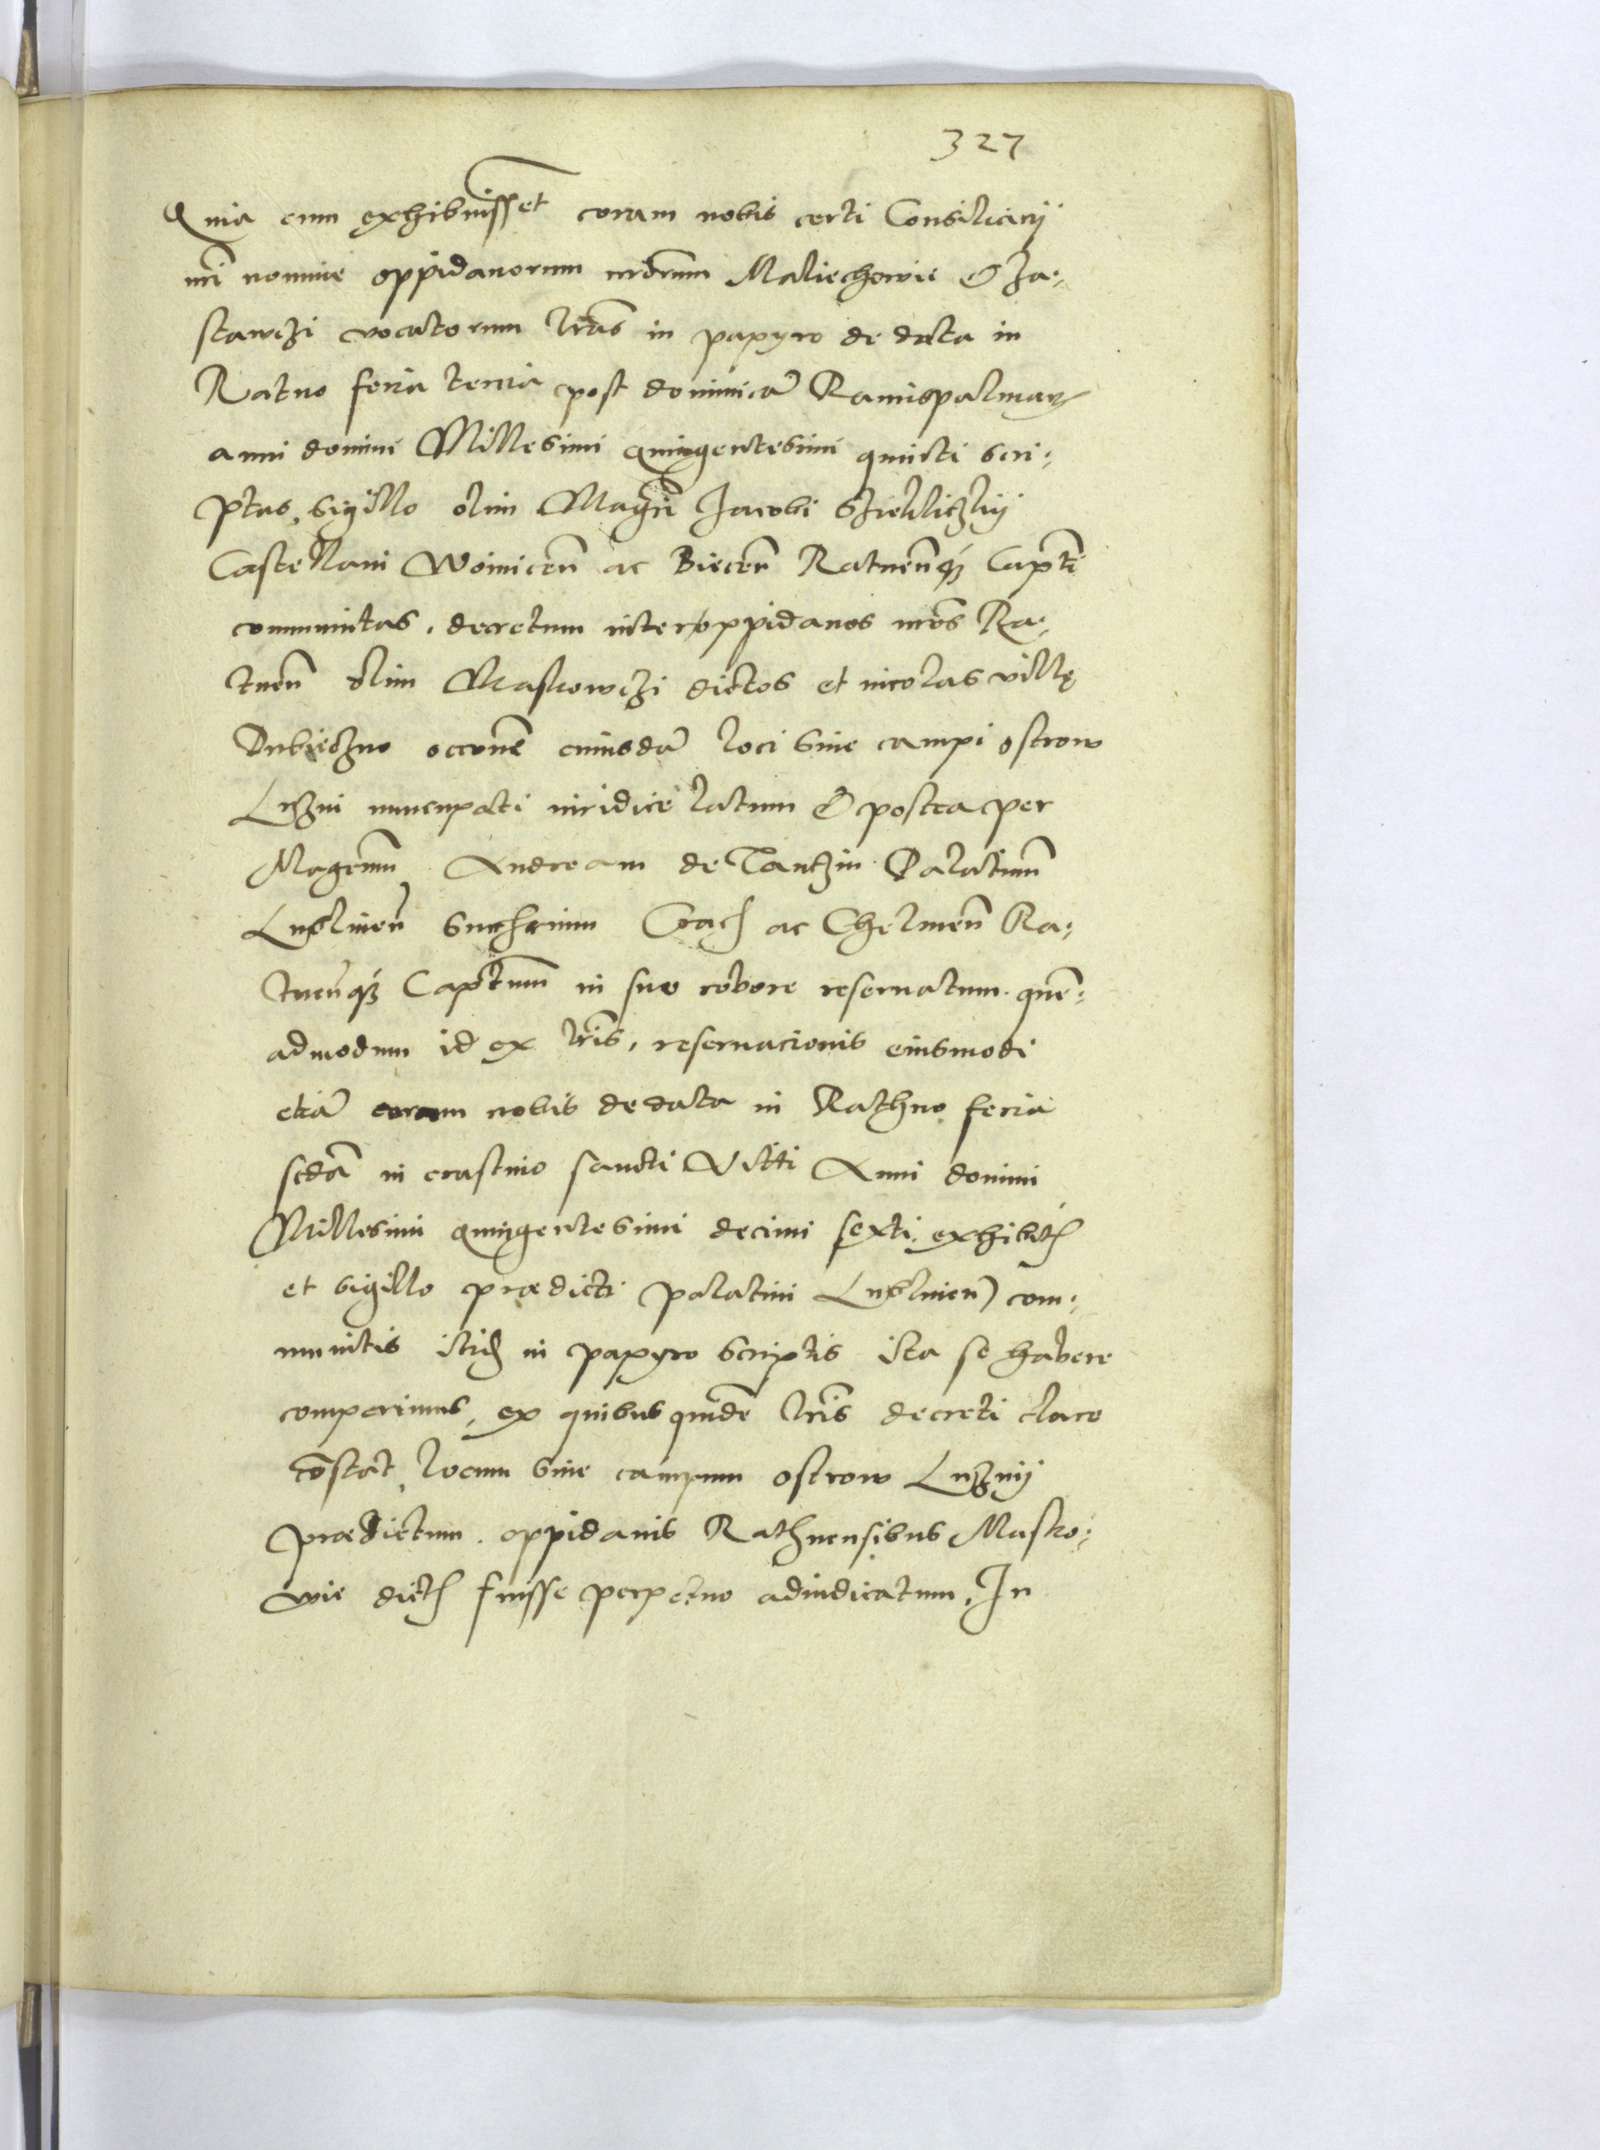 327
Quia cum exhibuisset coram nobis certi Consiliarij
nri nomine oppidanorum nrorum Maliechowie & Za-
stawczi vocatorum lras in papyro de data in
Ratno feria tertia post dominica Ramispalmarum
anni domini Millesimi quingentesimi quinti scri-
ptas, sigillo olim Magci Jacobi
Castellani Woinicen ac Biecen Ratnenq Capti
communitas, decretum inter oppidanos nros Ra-
tnen olim Maskowczi dictos et incolas villę
Dubieczno occone cuiusda loci siue campi ostrow
Luzni nuncupati iuridice latum & postea per
Magcum Andream de Tanczin Palatinum
Lublinen Succamerarium Crac ac Chelmen Ra-
tnenq Captum in suo robore reseruatum. quem-
admodum id ex lris, reseruacionis eiusmodi
etia coram nobis de data in Rathno feria
scda in crastino sancti Viti Anni domini
Millesimi quingentesimi decimi sexti, exhibit
et sigillo praedicti palatini Lublinen com-
munitis itid in papyro scriptis ita se habere
comperimus, ex quibus quide lris decreti clare
costat, locum siue campum ostrow Luznij
praedictum. oppidanis Rathnensibus Masko-
wie dict fuisse perpetuo adiudicatum, In